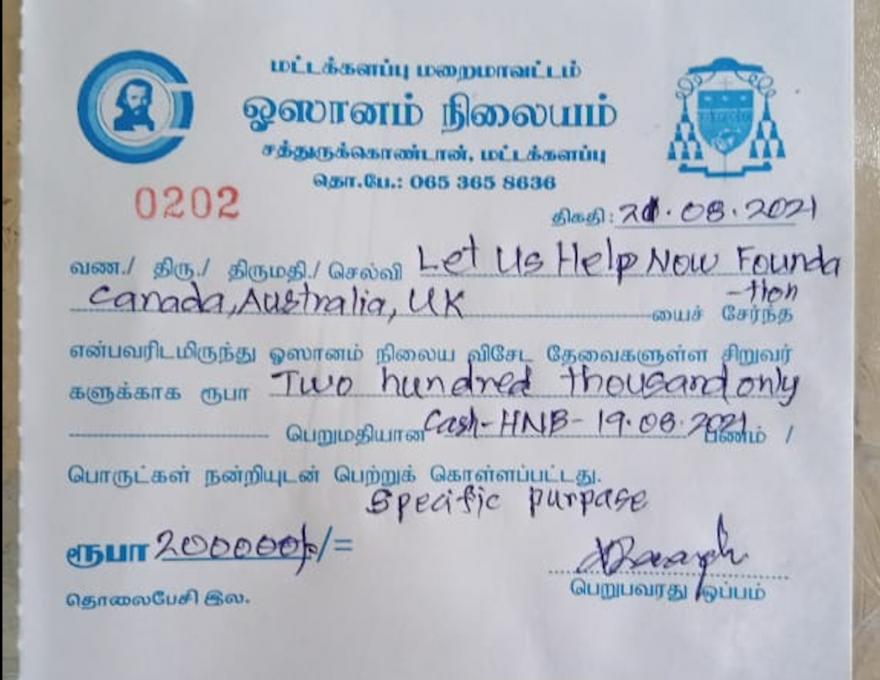 மட்டக்களப்பு மறைமாவட்டம்
ஓஸானம் நிலையம்
சத்துருக்கொண்டான், மட்டக்களப்பு
தொ.பே.: 065 365 8636
0202
திகதி: 21.08.2021
வண./ திரு./ திருமதி./ செல்வி Let Us Help Now Founda
-tion
Canada, Australia, UK யைச் சேர்ந்த
என்பவரிடமிருந்து ஓஸானம் நிலைய விசேட தேவைகளுள்ள சிறுவர்
களுக்காக ரூபா Two hundred thousand only
பெறுமதியான Cash-HNB-19.08.2021 பணம் /
பொருட்கள் நன்றியுடன் பெற்றுக் கொள்ளப்பட்டது.
Specific purpase
ரூபா 200000/=
பெறுபவரது ஒப்பம்
தொலைபேசி இல.